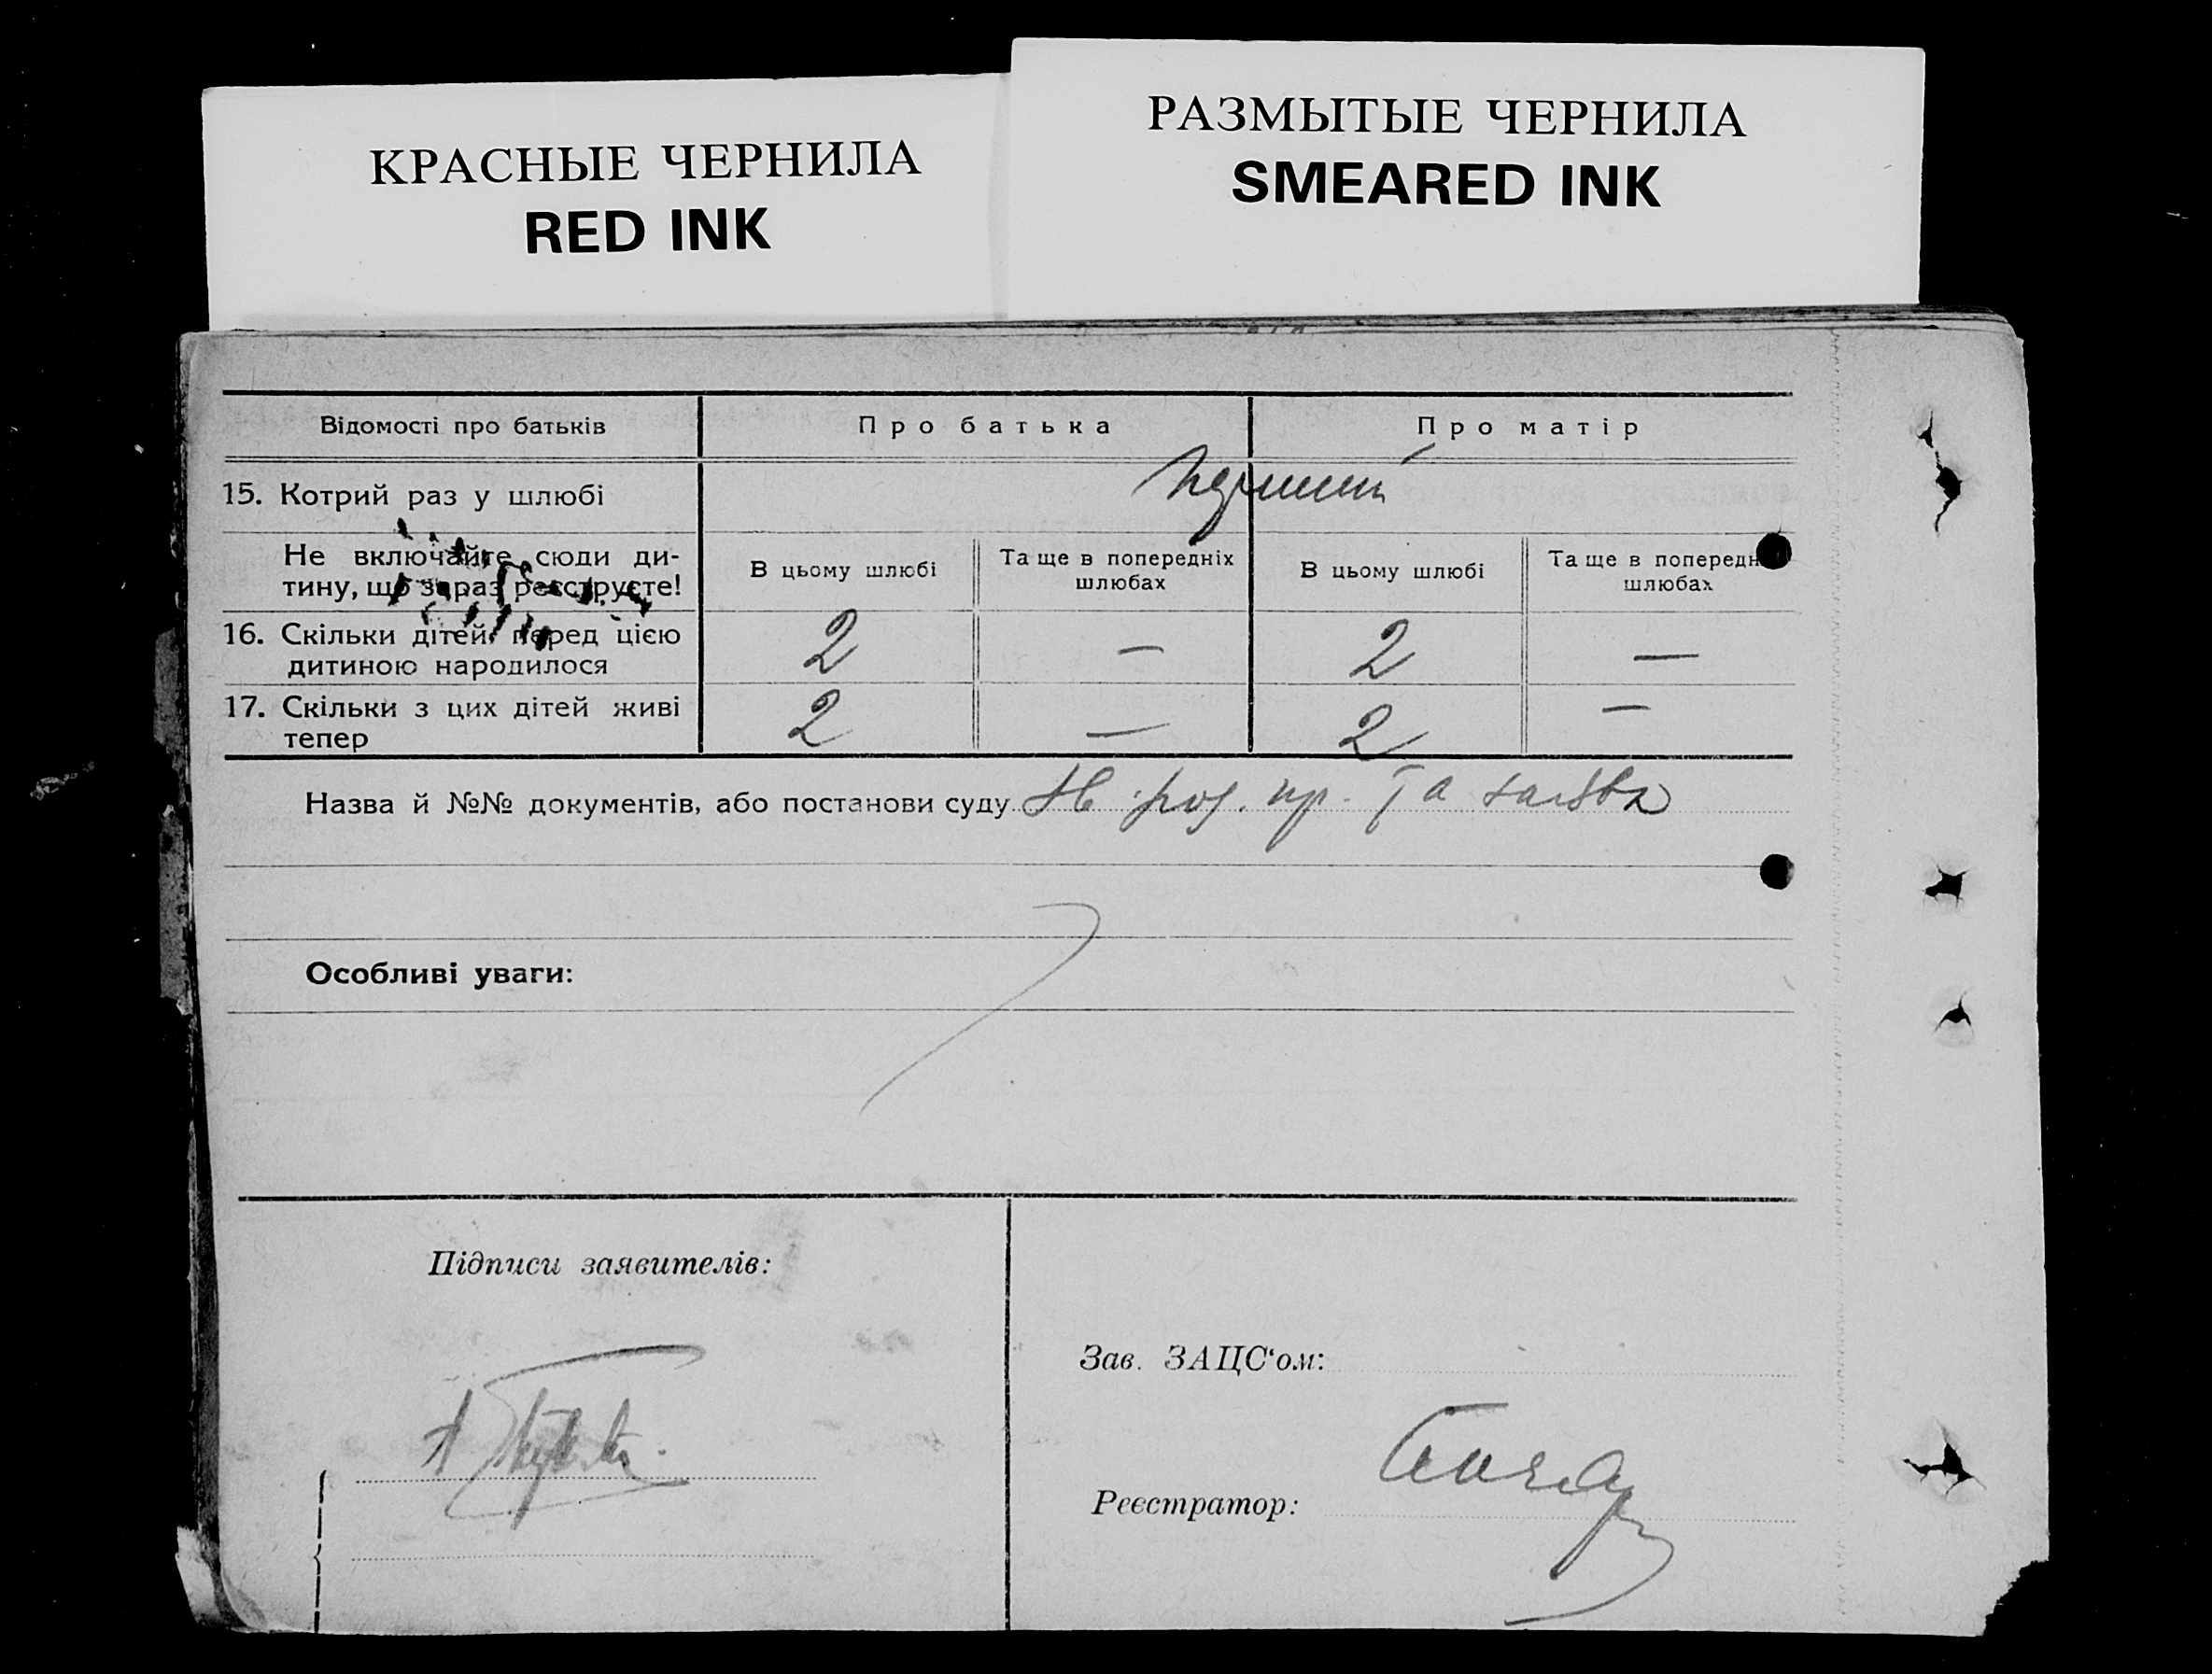 КРАСНЫЕ ЧЕРНИЛА
RED INK
РАЗМЫТЫЕ ЧЕРНИЛА
SMEARED INK
Відомості про батьків
Про батька
Про матір
15. Котрий раз у шлюбі
перший
Не включайте сюди ди-
тину, що зараз реєструєте!
В цьому шлюбі
Та ще в попередніх
шлюбах
В цьому шлюбі
Та ще в попередн
шлюбах
16. Скільки дітей перед цією
дитиною народилося
2 — 2 —
17. Скільки з цих дітей живі
тепер
2 — 2 —
Назва й №№ документів, або постанови суду пр. та заява
Особливі уваги:
Підписи заявителів:
Зав. ЗАЦС‘ом:
Реєстратор: